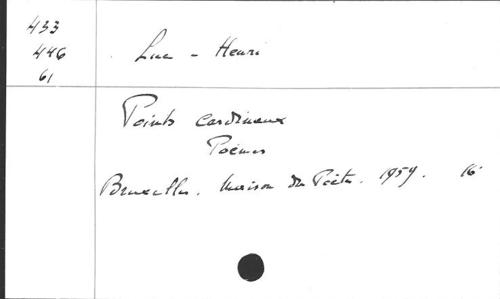 433
446
61
Luc - Henri
Points cardinaux
Poèmes
Bruxelles. Maison du Poète. 1959. 16